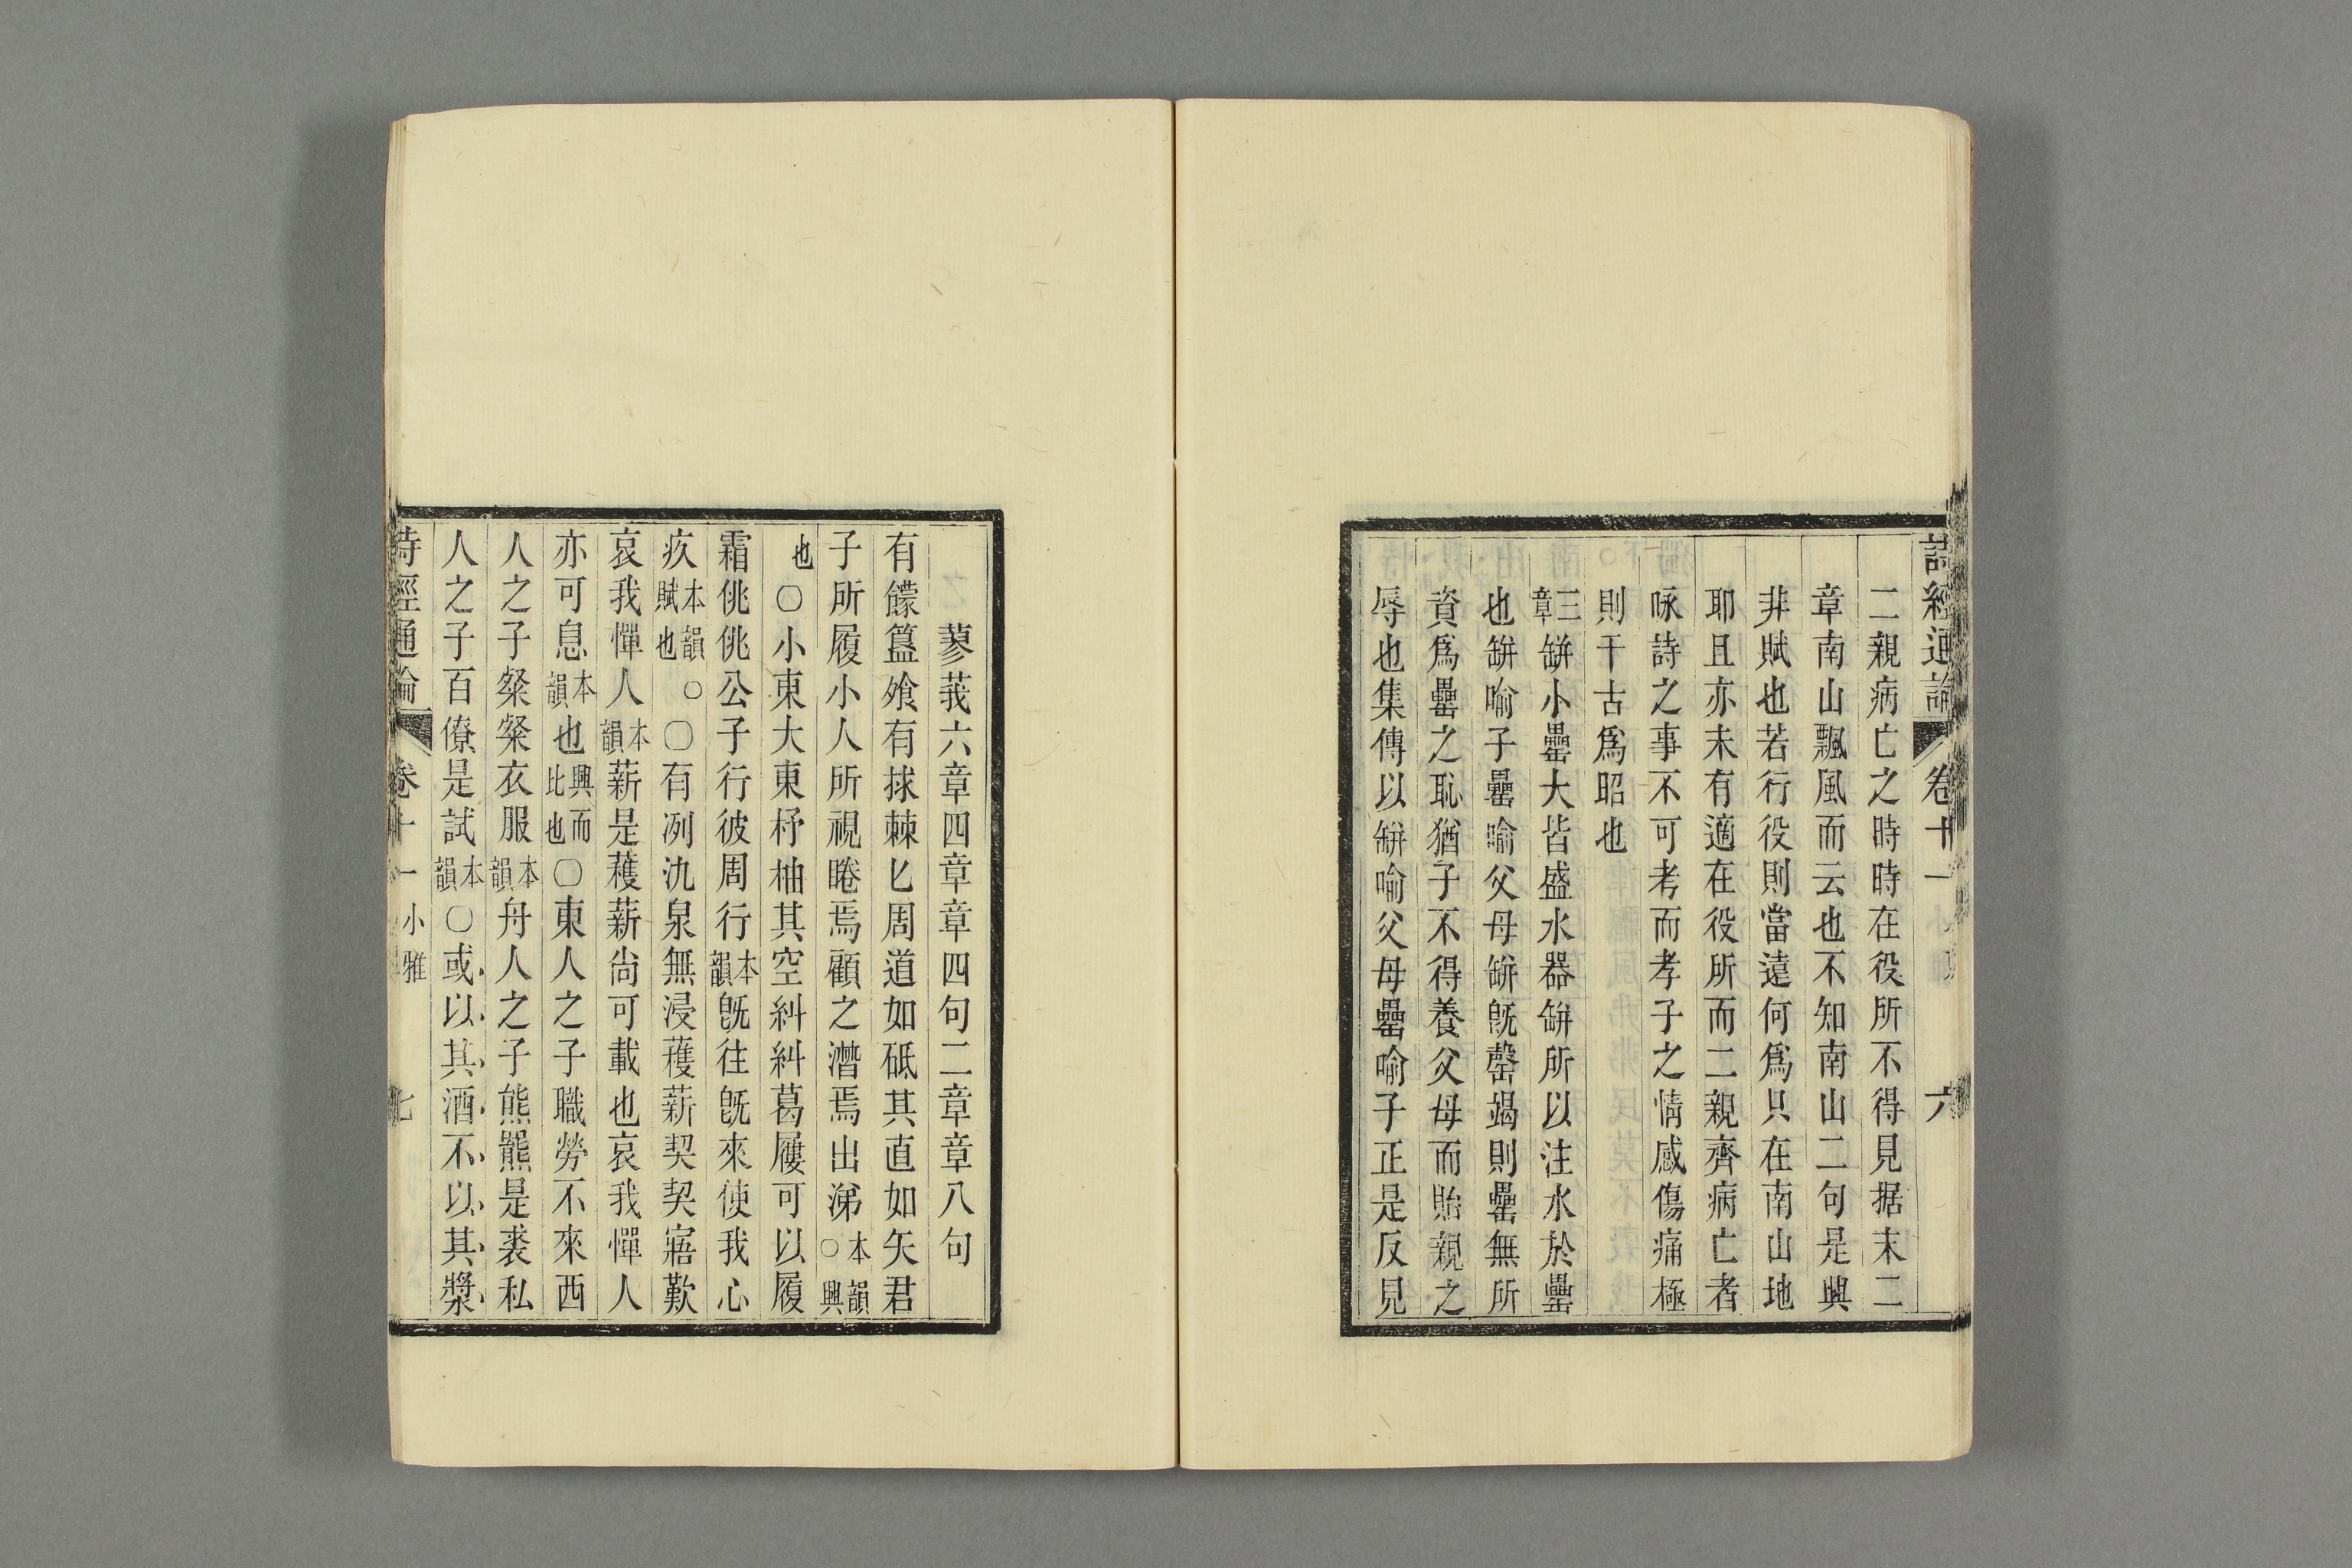 詩經通論 卷十一 六
二親病亡之時時在役所不得見据末二
章南山飄風而云也不知南山二句是興
非賦也若行役則當遠何爲只在南山地
耶且亦未有適在役所而二親齊病亡者
咏詩之事不可考而孝子之情感傷痛極
則千古爲昭也
三章缾小罍大皆盛水器缾所以注水於罍
也缾喻子罍喻父母缾旣罄竭則罍無所
資爲罍之恥猶子不得養父母而貽親之
辱也集傳以缾喻父母罍喻子正是反見
蓼莪六章四章章四句二章章八句
有饛簋飧有捄棘匕周道如砥其直如矢君
子所履小人所視睠焉顧之潸焉出涕本韻○興
也○小東大東杼柚其空糾糾葛屨可以履
霜佻佻公子行彼周行本韻旣往旣來使我心
疚本韻○賦也○有冽氿泉無浸穫薪契契寤歎
哀我憚人本韻薪是穫薪尙可載也哀我憚人
亦可息本韻也興而比也○東人之子職勞不來西
人之子粲粲衣服本韻舟人之子熊羆是裘私
人之子百僚是試本韻○或以其酒不以其漿
詩經通論 卷十一 小雅 七